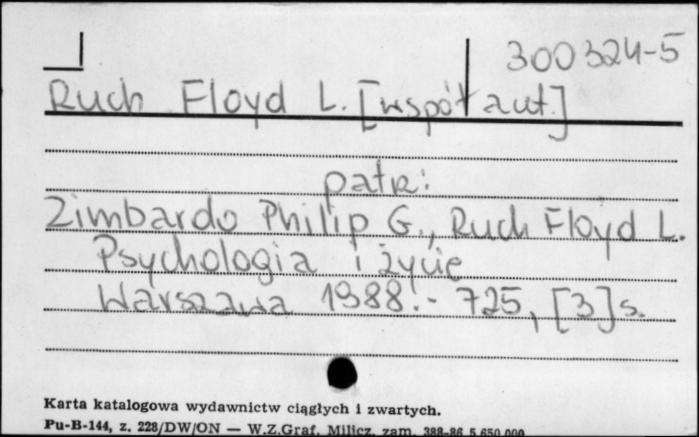 300324-5
Ruch Floyd L. [współaut.]
patrz:
Zimbardo Philip G., Ruch Floyd L.
Psychologia i życie
Warszawa 1988.- 725, [3] s.
Karta katalogowa wydawnictw ciągłych i zwartych.
Pu-B-144, z. 228/DW/ON — W.Z.Graf. Milicz, zam. 388-86 5.650.000